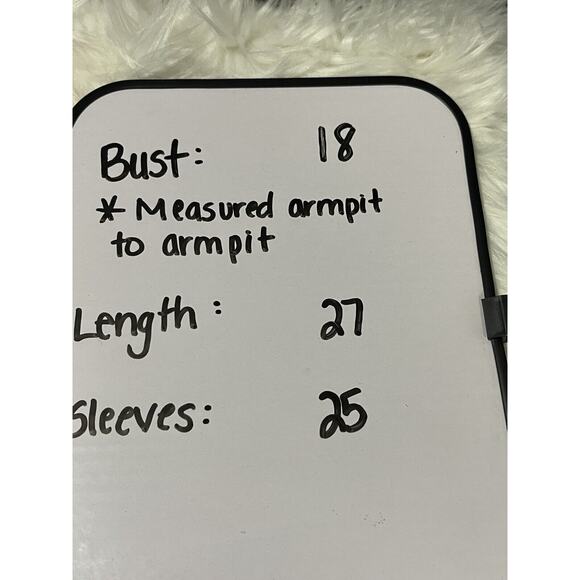 Bust: 18
* Measured armpit
to armpit
Length: 27
Sleeves: 25